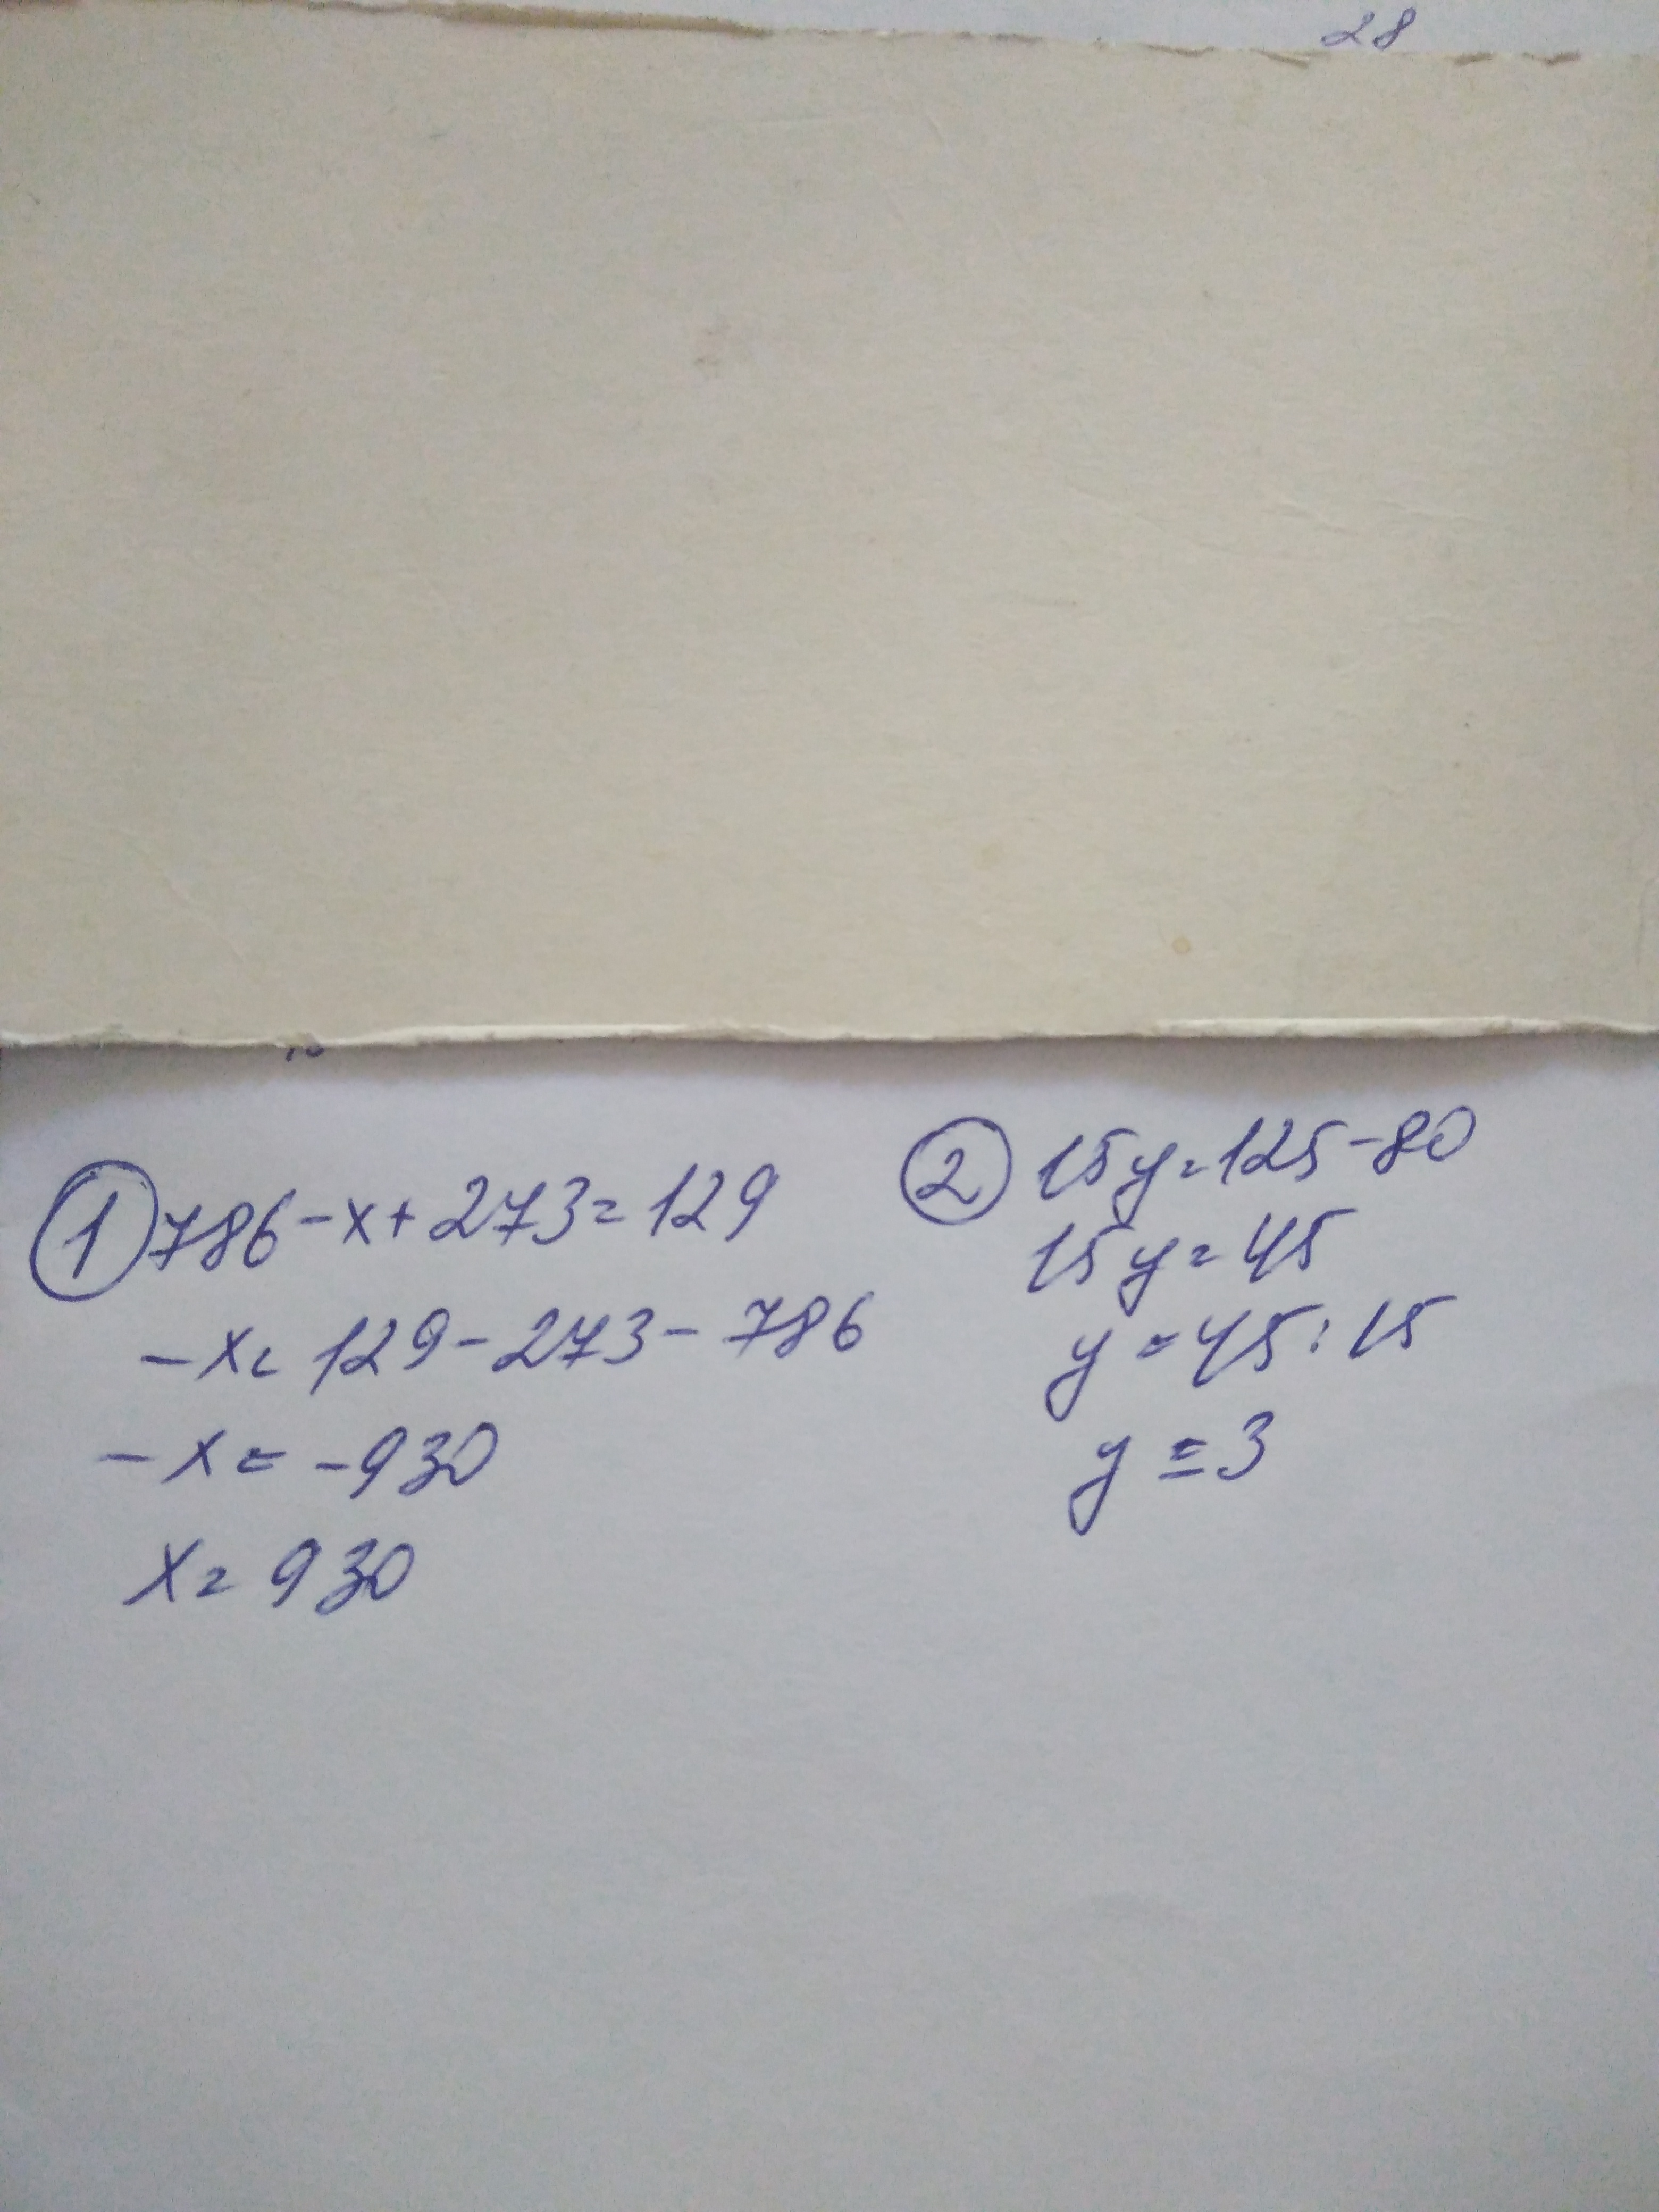 28
① 786-x+273=129
-x=129-273-786
-x=-930
x=930
② 15y=125-80
15y=45
y=45:15
y=3